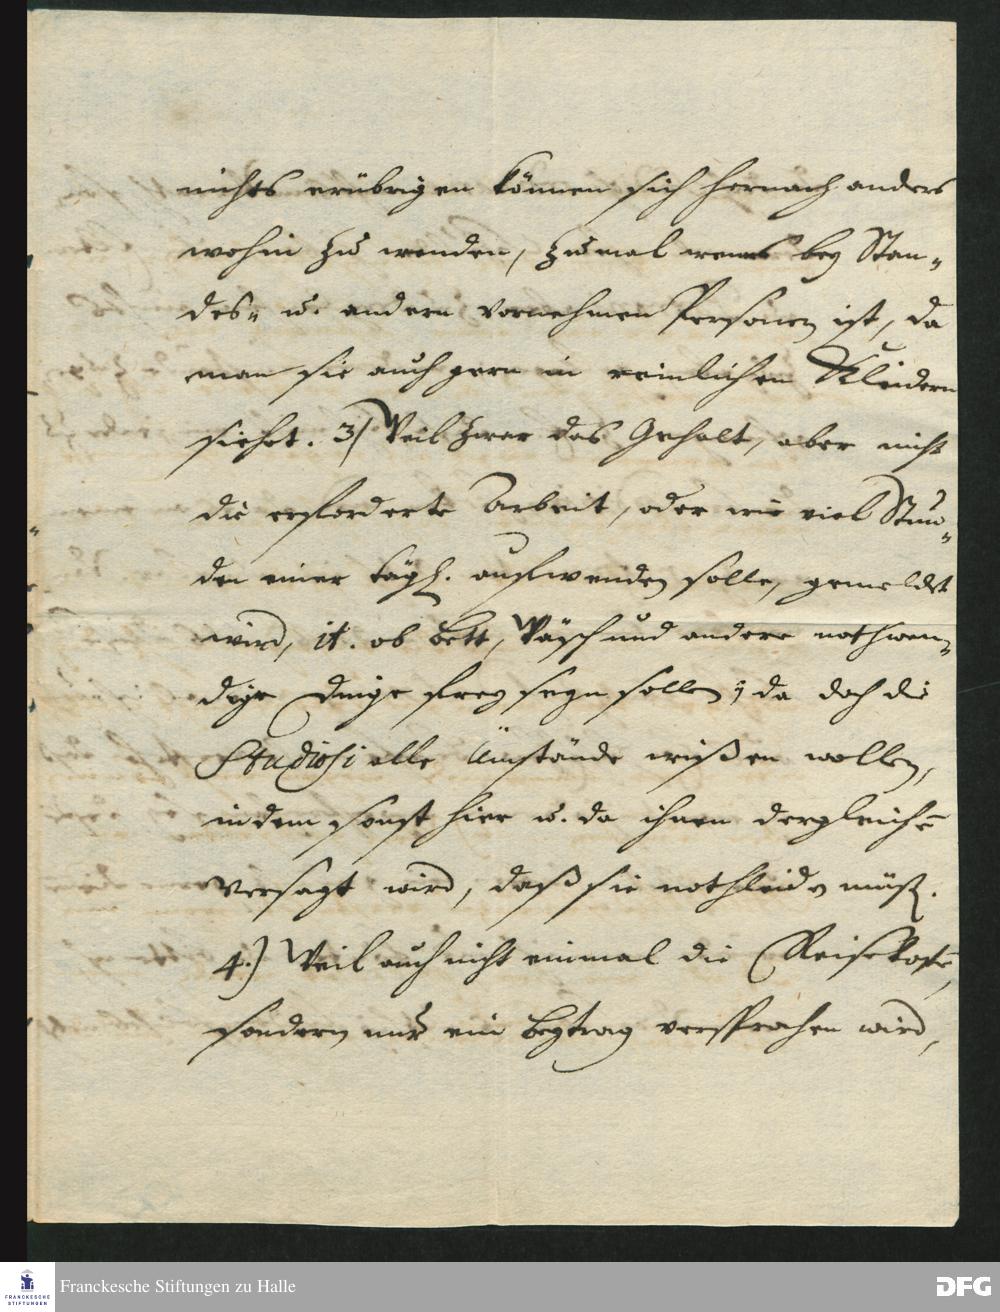 nichts erübrigen können sich hernach anders
wohin zu wenden, zumal wenns bey Stan„
des„ u. andern vornehmen Personen ist, da
man sie auch gern in reinlichen Kleidern
siehet. 3) Weil zwar das Gehalt, aber nicht
die erforderte Arbeit, oder wie viel Stun„
den einer tägl. aufwenden solle, gemeldet
wird, it. ob Bett, Wäsch und andere nothwen„
dige Dinge frey seyn sollen; da doch die
Studiosi alle Umstände wißen wollen,
indem sonst hier u. da ihnen dergleichē
versagt wird, daß sie nothleiden müß.
4.) Weil auch nicht einmal die Reisekostē,
sondern nur ein Beytrag versprochen wird,
Franckesche Stiftungen zu Halle
FRANCKESCHE
STIFTUNGEN
DFG